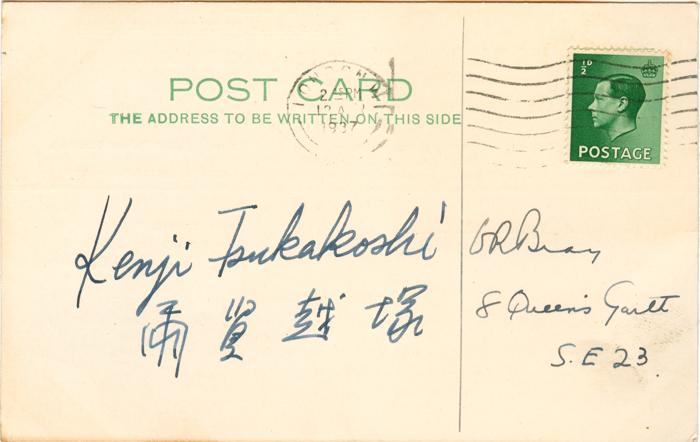 POST CARD
THE ADDRESS TO BE WRITTEN ON THIS SIDE
LONDON
1937
½D
POSTAGE
Kenji Tsukakoshi
塚越賢爾
Bray
8 Queen's Garth
S.E 23.